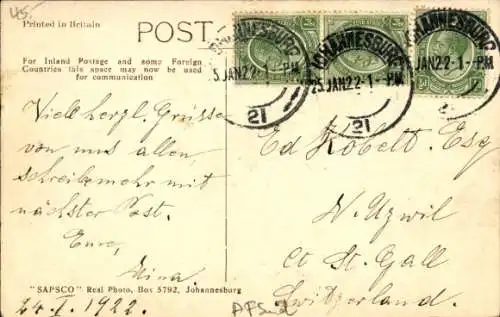 45.-
Printed in Britain
POST
For Inland Postage and some Foreign
Countries this space may now be used
for communication
JOHANNESBURG
25 JAN 22 · 1 - PM
21
JOHANNESBURG
25 JAN 22 · 1 - PM
21
JOHANNESBURG
JAN 22 · 1 - PM
Viele herzl. Grüsse
von uns allen,
schreibe mehr mit
nächster Post.
Eure,
Nina.
Ed Kobelt. Esq
N. Uzwil
Ct St. Gall
Switzerland.
"SAPSCO" Real Photo, Box 5792, Johannesburg
24. I. 1922.